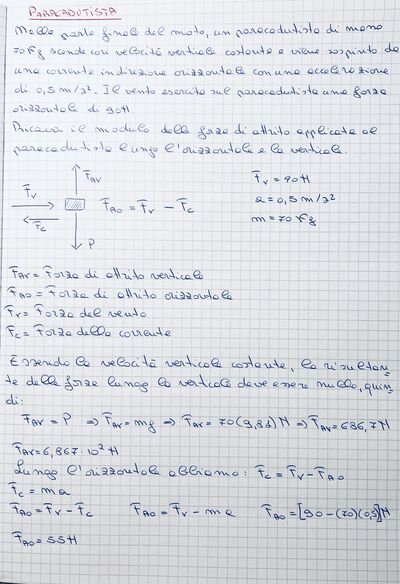 PARACADUTISTA
Nella parte finale del moto, un paracadutista di massa
70 Kg scende con velocità verticale costante e viene sospinto da
una corrente in direzione orizzontale con una accelerazione
di 0,5 m/s². Il vento esercita sul paracadutista una forza
orizzontale di 90N
Ricava il modulo della forza di attrito applicata al
paracadutista lungo l'orizzontale e la verticale.
F_AV
F_V
F_C
F_AO = F_V - F_C
P
F_V = 90 N
a = 0,5 m/s²
m = 70 Kg
F_AV = Forza di attrito verticale
F_AO = Forza di attrito orizzontale
F_V = Forza del vento
F_C = Forza della corrente
Essendo la velocità verticale costante, la risultan-
te delle forze lungo la verticale deve essere nulla, quin-
di:
F_AV = P ⇒ F_AV = mg ⇒ F_AV = 70(9,81) N ⇒ F_AV = 686,7 N
F_AV = 6,867 · 10² N
Lungo l'orizzontale abbiamo: F_C = F_V - F_AO
F_C = ma
F_AO = F_V - F_C F_AO = F_V - ma F_AO = [90 - (70)(0,5)] N
F_AO = 55 N